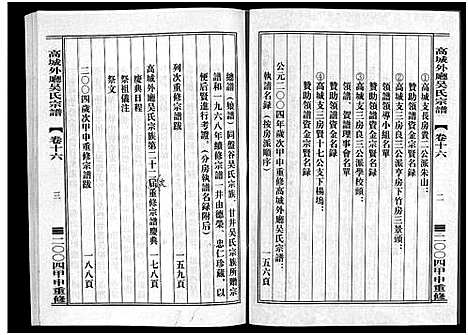 高城外廳吳氏宗譜
卷十六
二
二〇〇四甲申重修
①高城支長房貴二公派朱山：
贊助領譜資金宗賢名錄
②高城支三房良三公派亨房下竹房三景頭：
領譜領導小組名單
贊助領譜資金宗賢名錄
③高城支三房良三公派學校頭：
領譜、賀譜理事會名單
贊助領譜資金宗賢名錄
④高城支三房賢十七公支下楊塢：
贊助領譜資金宗賢名錄
公元二〇〇四年歲次甲申重修高城外廳吳氏宗譜：
執譜名錄（按房派順序）
一五六頁
總譜（娘譜）同盤谷吳氏宗族、甘井吳氏宗族所贈宗
譜和一九六八年續修宗譜一并由德榮、忠仁珍藏，以
便后賢進行考證。（分房執譜名錄附后）
列次重修宗譜跋
一五九頁
高城外廳吳氏宗族第二十二屆重修宗譜慶典
一七八頁
慶典日程
祭祖儀注
祭文
二〇〇四歲次甲申重修宗譜跋
一八八頁
高城外廳吳氏宗譜
卷十六
三
二〇〇四甲申重修